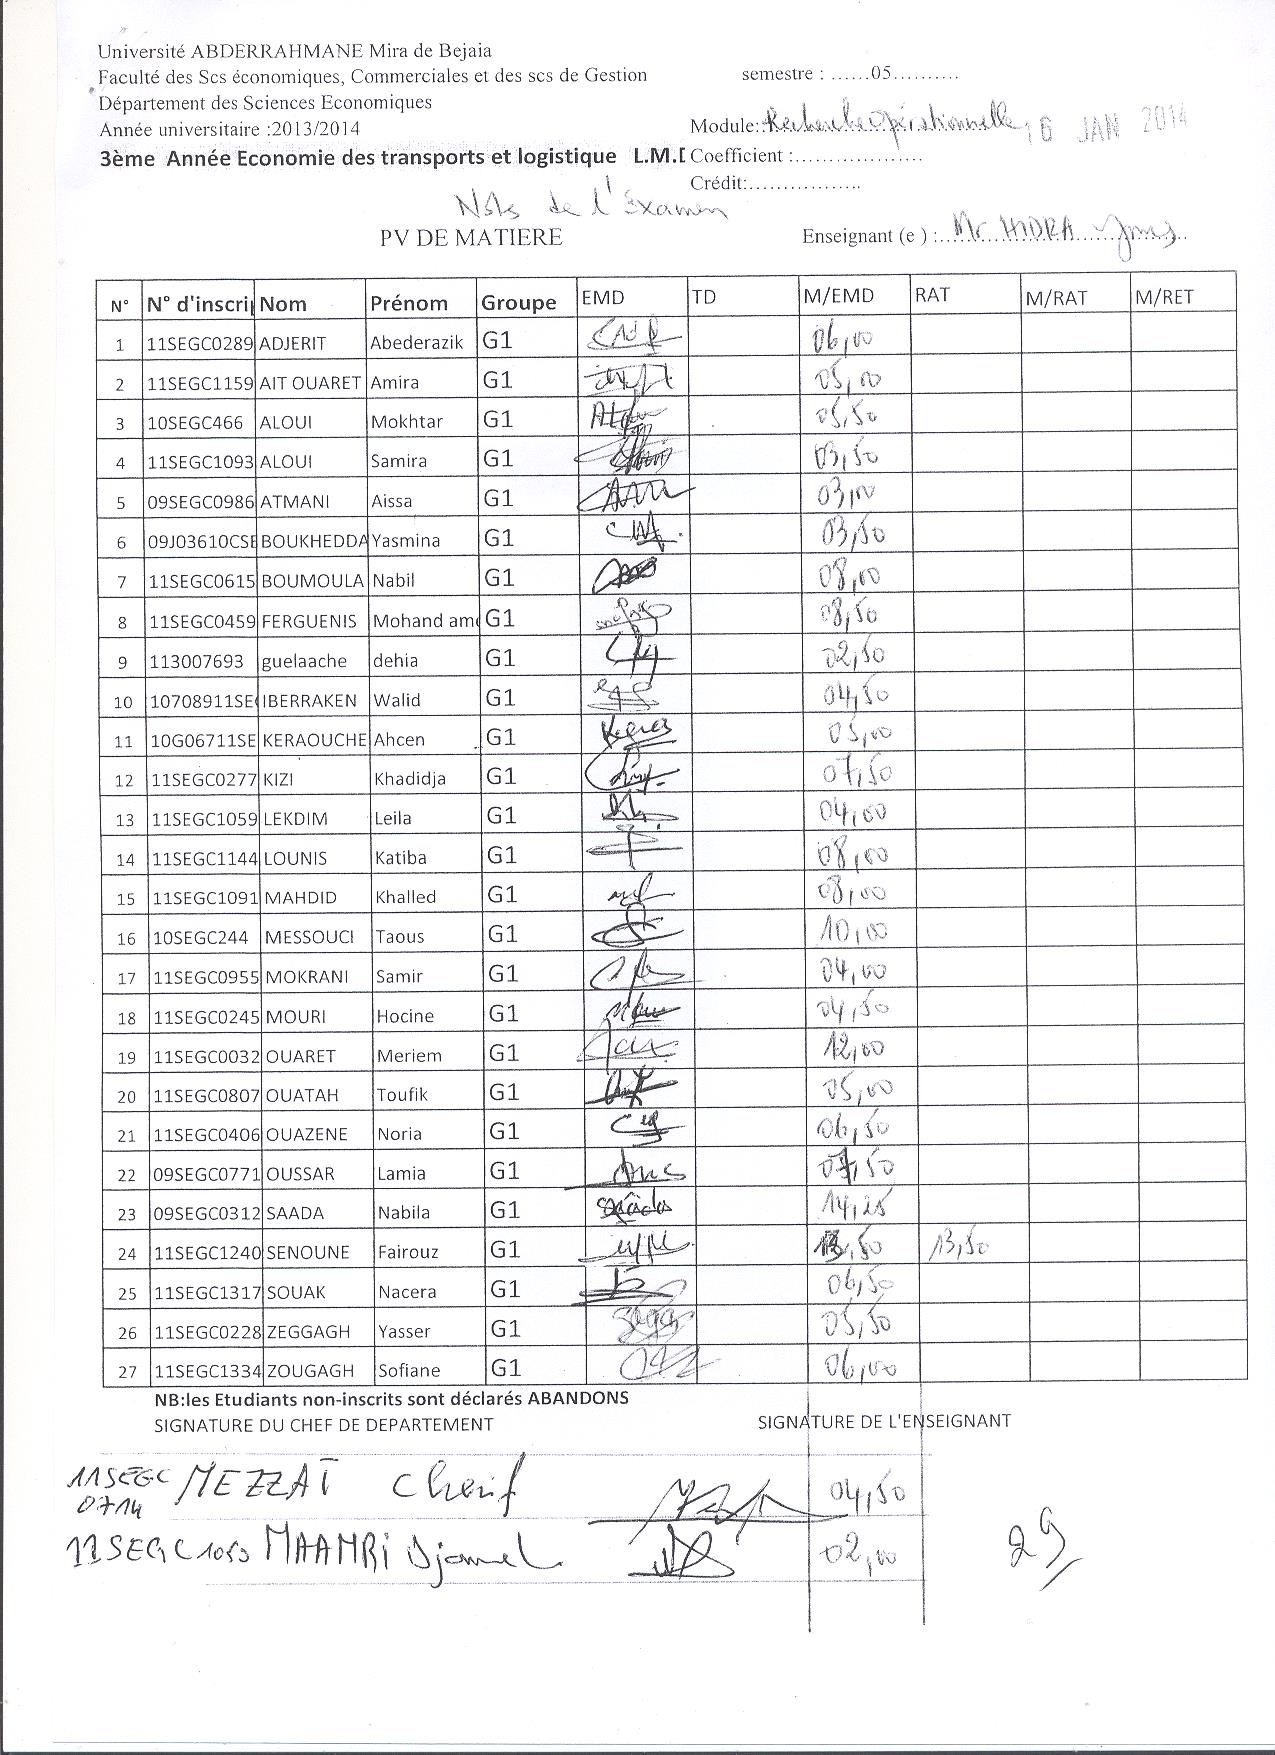 Université ABDERRAHMANE Mira de Bejaia
Faculté des Scs économiques, Commerciales et des scs de Gestion semestre : ......05..........
Département des Sciences Economiques
Année universitaire :2013/2014 Module: Recherche Opérationnelle 16 JAN 2014
3ème Année Economie des transports et logistique L.M.D Coefficient :...................
Crédit:.................
de l'Examen
PV DE MATIERE Enseignant (e ) : Mr HIDRA
N° N° d'inscri Nom Prénom Groupe EMD TD M/EMD RAT M/RAT M/RET
1 11SEGC0289 ADJERIT Abederazik G1 06,00
2 11SEGC1159 AIT OUARET Amira G1 05,00
3 10SEGC466 ALOUI Mokhtar G1 05,50
4 11SEGC1093 ALOUI Samira G1 03,50
5 09SEGC0986 ATMANI Aissa G1 03,00
6 09J03610CSE BOUKHEDDA Yasmina G1 03,50
7 11SEGC0615 BOUMOULA Nabil G1 08,00
8 11SEGC0459 FERGUENIS Mohand am G1 08,50
9 113007693 guelaache dehia G1 02,50
10 10708911SE IBERRAKEN Walid G1 04,50
11 10G06711SE KERAOUCHE Ahcen G1 05,00
12 11SEGC0277 KIZI Khadidja G1 07,50
13 11SEGC1059 LEKDIM Leila G1 04,00
14 11SEGC1144 LOUNIS Katiba G1 08,00
15 11SEGC1091 MAHDID Khalled G1 08,00
16 10SEGC244 MESSOUCI Taous G1 10,00
17 11SEGC0955 MOKRANI Samir G1 04,00
18 11SEGC0245 MOURI Hocine G1 04,50
19 11SEGC0032 OUARET Meriem G1 12,00
20 11SEGC0807 OUATAH Toufik G1 05,00
21 11SEGC0406 OUAZENE Noria G1 06,50
22 09SEGC0771 OUSSAR Lamia G1 07,50
23 09SEGC0312 SAADA Nabila G1 14,25
24 11SEGC1240 SENOUNE Fairouz G1 13,50 13,50
25 11SEGC1317 SOUAK Nacera G1 06,50
26 11SEGC0228 ZEGGAGH Yasser G1 05,50
27 11SEGC1334 ZOUGAGH Sofiane G1 06,00
NB:les Etudiants non-inscrits sont déclarés ABANDONS
SIGNATURE DU CHEF DE DEPARTEMENT SIGNATURE DE L'ENSEIGNANT
11SEGC MEZZAI Cherif 04,50
0714
11SEGC1053 MAAMRI Djamel 02,00
29